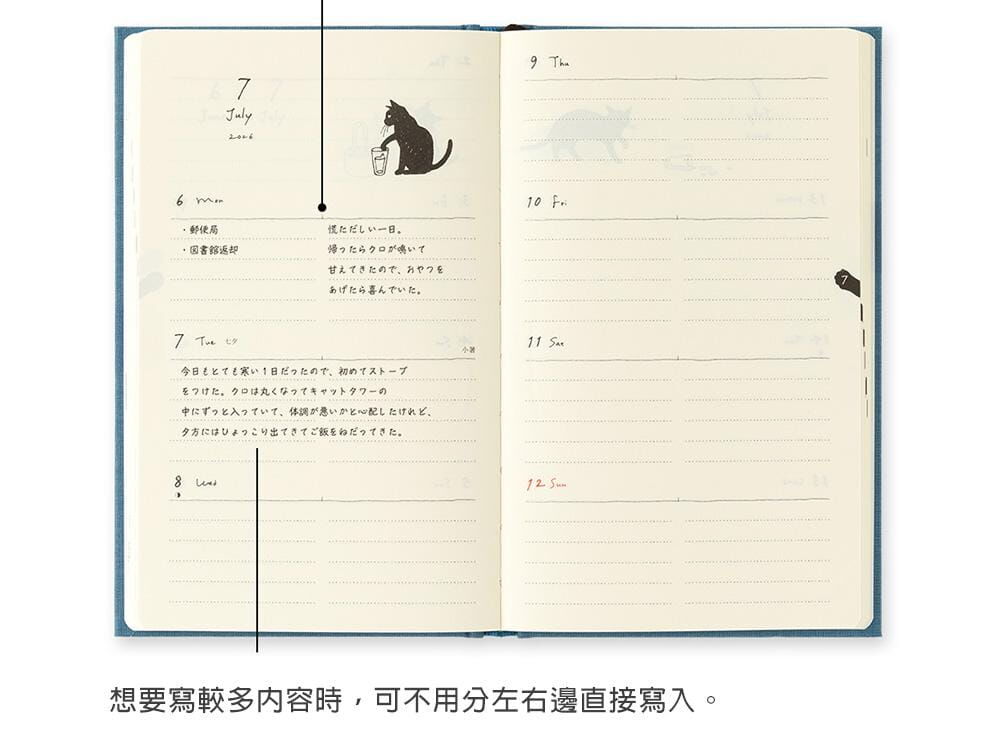 7
July
2026
6 Mon
・郵便局
・図書館返却
慌ただしい一日。
帰ったらクロが鳴いて
甘えてきたので、おやつを
あげたら喜んでいた。
7 Tue 七夕
小暑
今日もとても寒い1日だったので、初めてストーブ
をつけた。クロは丸くなってキャットタワーの
中にずっと入っていて、体調が悪いかと心配したけれど、
夕方にはひょっこり出てきてご飯をねだってきた。
8 Wed
9 Thu
10 Fri
7
11 Sat
12 Sun
想要寫較多內容時，可不用分左右邊直接寫入。